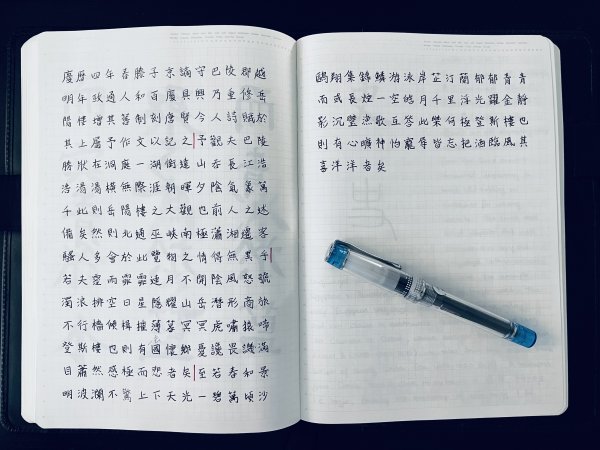 慶曆四年春滕子京謫守巴陵郡越
明年政通人和百廢具興乃重修岳
陽樓增其舊制刻唐賢今人詩賦於
其上屬予作文以記之予觀夫巴陵
勝狀在洞庭一湖銜遠山吞長江浩
浩湯湯橫無際涯朝暉夕陰氣象萬
千此則岳陽樓之大觀也前人之述
備矣然則北通巫峽南極瀟湘遷客
騷人多會於此覽物之情得無異乎
若夫霪雨霏霏連月不開陰風怒號
濁浪排空日星隱耀山岳潛形商旅
不行檣傾楫摧薄暮冥冥虎嘯猿啼
登斯樓也則有去國懷鄉憂讒畏譏滿
目蕭然感極而悲者矣至若春和景
明波瀾不驚上下天光一碧萬頃沙
鷗翔集錦鱗游泳岸芷汀蘭郁郁青青
而或長煙一空皓月千里浮光躍金靜
影沉璧漁歌互答此樂何極登斯樓也
則有心曠神怡寵辱皆忘把酒臨風其
喜洋洋者矣